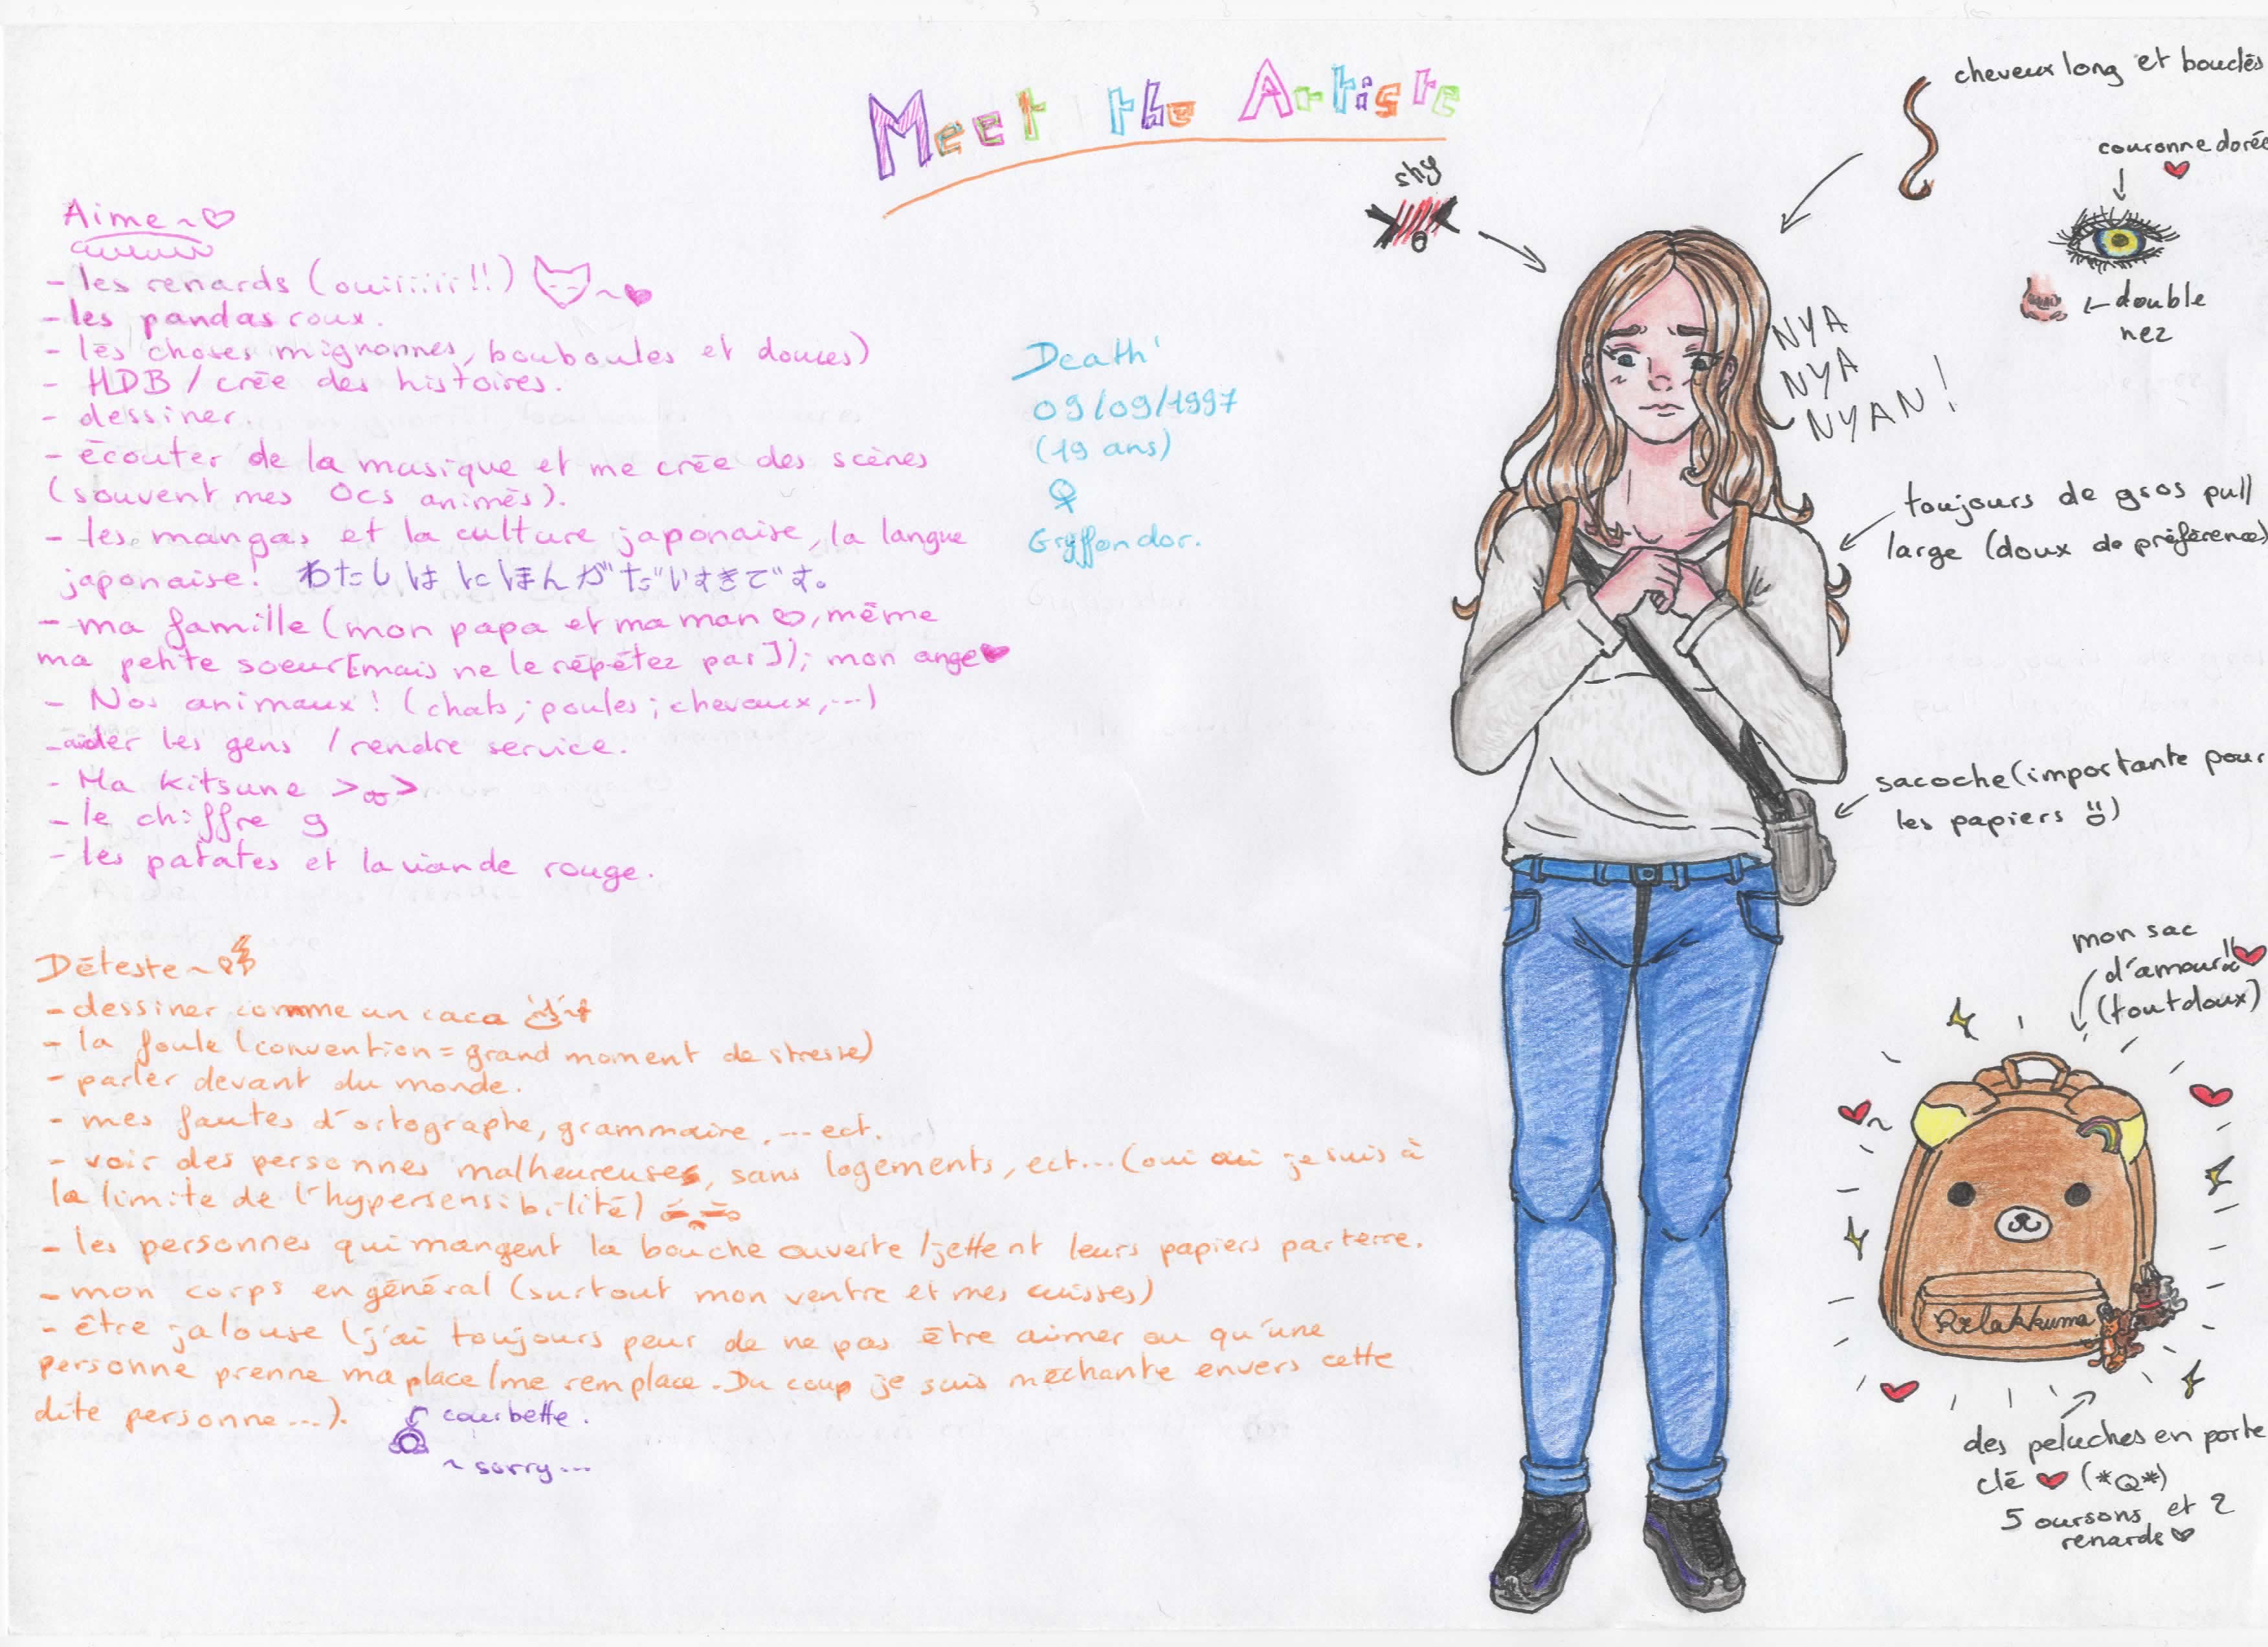 Meet the Artiste
Aime ~ ♡
- les renards (ouiiiiii!!) ~♥
- les pandas roux.
- les choses mignonnes, bouboules et douces)
- HDB / crée des histoires.
- dessiner.
- écouter de la musique et me crée des scènes
(souvent mes Ocs animés).
- les mangas et la culture japonaise, la langue
japonaise! わたし は にほんが だいすきです。
- ma famille (mon papa et ma man ♡, même
ma petite soeur [mais ne le répétez pas]); mon ange ♥
- Nos animaux! (chats; poules; chevaux, ...)
- aider les gens / rendre service.
- Ma kitsune >ω>
- le chiffre 9
- les patates et la viande rouge.
Déteste ~
- dessiner comme un caca
- la foule (convention = grand moment de stresse)
- parler devant du monde.
- mes fautes d'ortographe, grammaire, ... ect.
- voir des personnes malheureuses, sans logements, ect... (oui oui je suis à
la limite de l'hypersensibilité)
- les personnes qui mangent la bouche ouverte / jettent leurs papiers par terre.
- mon corps en général (surtout mon ventre et mes cuisses)
- être jalouse (j'ai toujours peur de ne pas être aimer ou qu'une
personne prenne ma place / me remplace. Du coup je suis méchante envers cette
dite personne ...).
courbette.
~ sorry...
Death'
09/09/1997
(19 ans)
♀
Gryffondor.
shy
cheveux long et bouclés
couronne dorée
♥
double
nez
NYA
NYA
NYAN!
toujours de gros pull
large (doux de préférence)
sacoche (importante pour
les papiers)
mon sac
d'amour!! ♥
(tout doux)
Rilakkuma
des peluches en porte
clé ♥ (*Q*)
5 oursons et 2
renards ♥